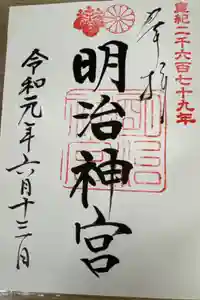 皇紀二千六百七十九年
奉拝
明治神宮
令和元年六月十三日